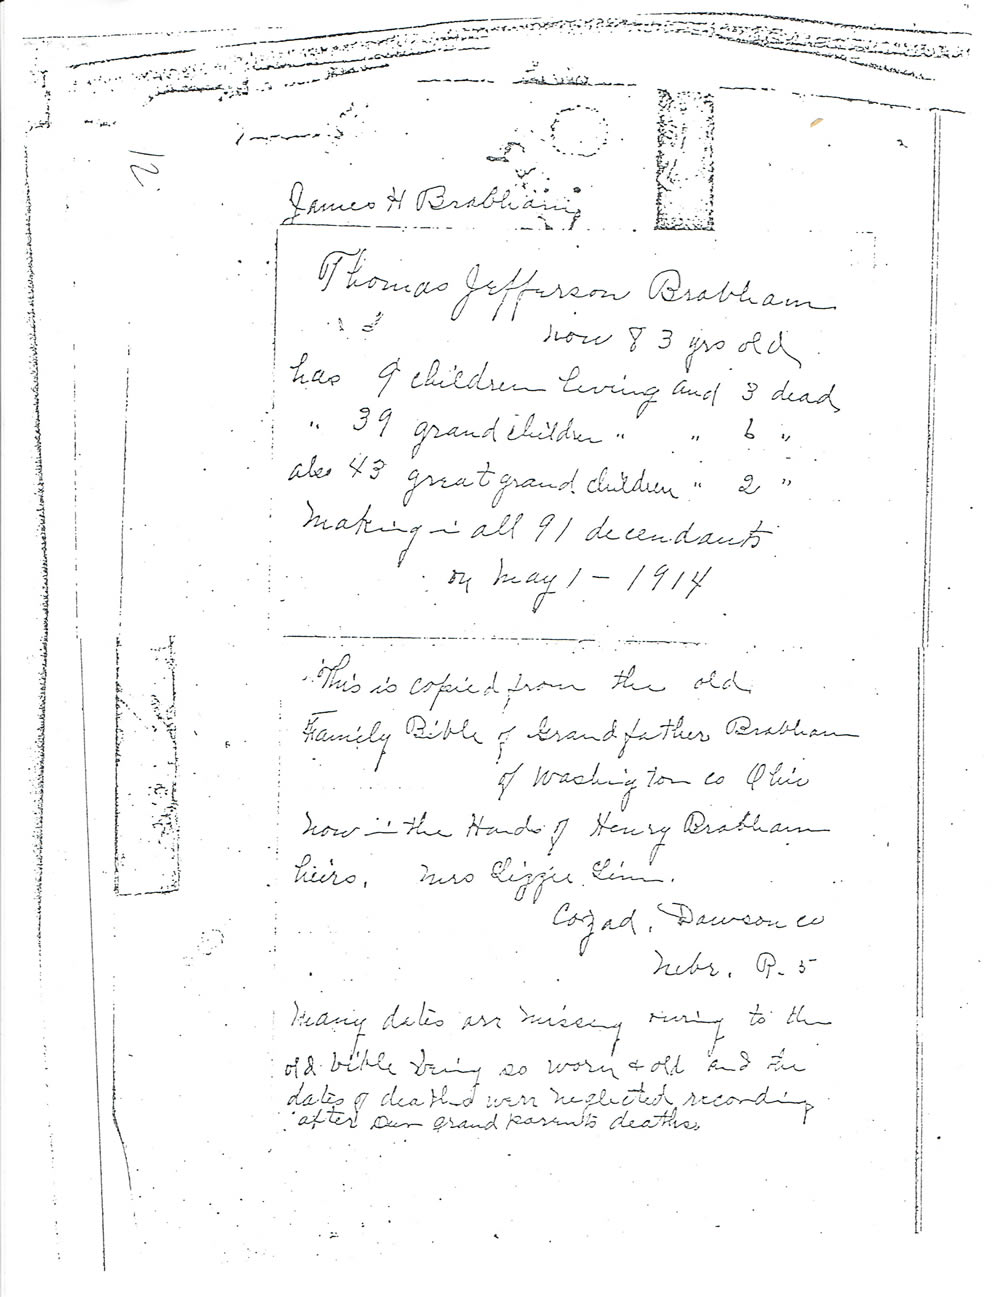 12
James H Brabham
Thomas Jefferson Brabham
now 83 yrs old
has 9 children living and 3 dead
" 39 grand children " " 6 "
also 43 great grand children " 2 "
Making in all 91 decendants
on May 1 - 1914
This is copied from the old
Family Bible of Grandfather Brabham
of Washington co Ohio
now in the Hands of Henry Brabham
heirs. Mrs Lizzie Linn.
Cozad, Dawson co
Nebr. R. 5
Many dates are missing owing to the
old bible being so worn & old and the
dates of deaths were neglected recording
after our grand parents deaths.